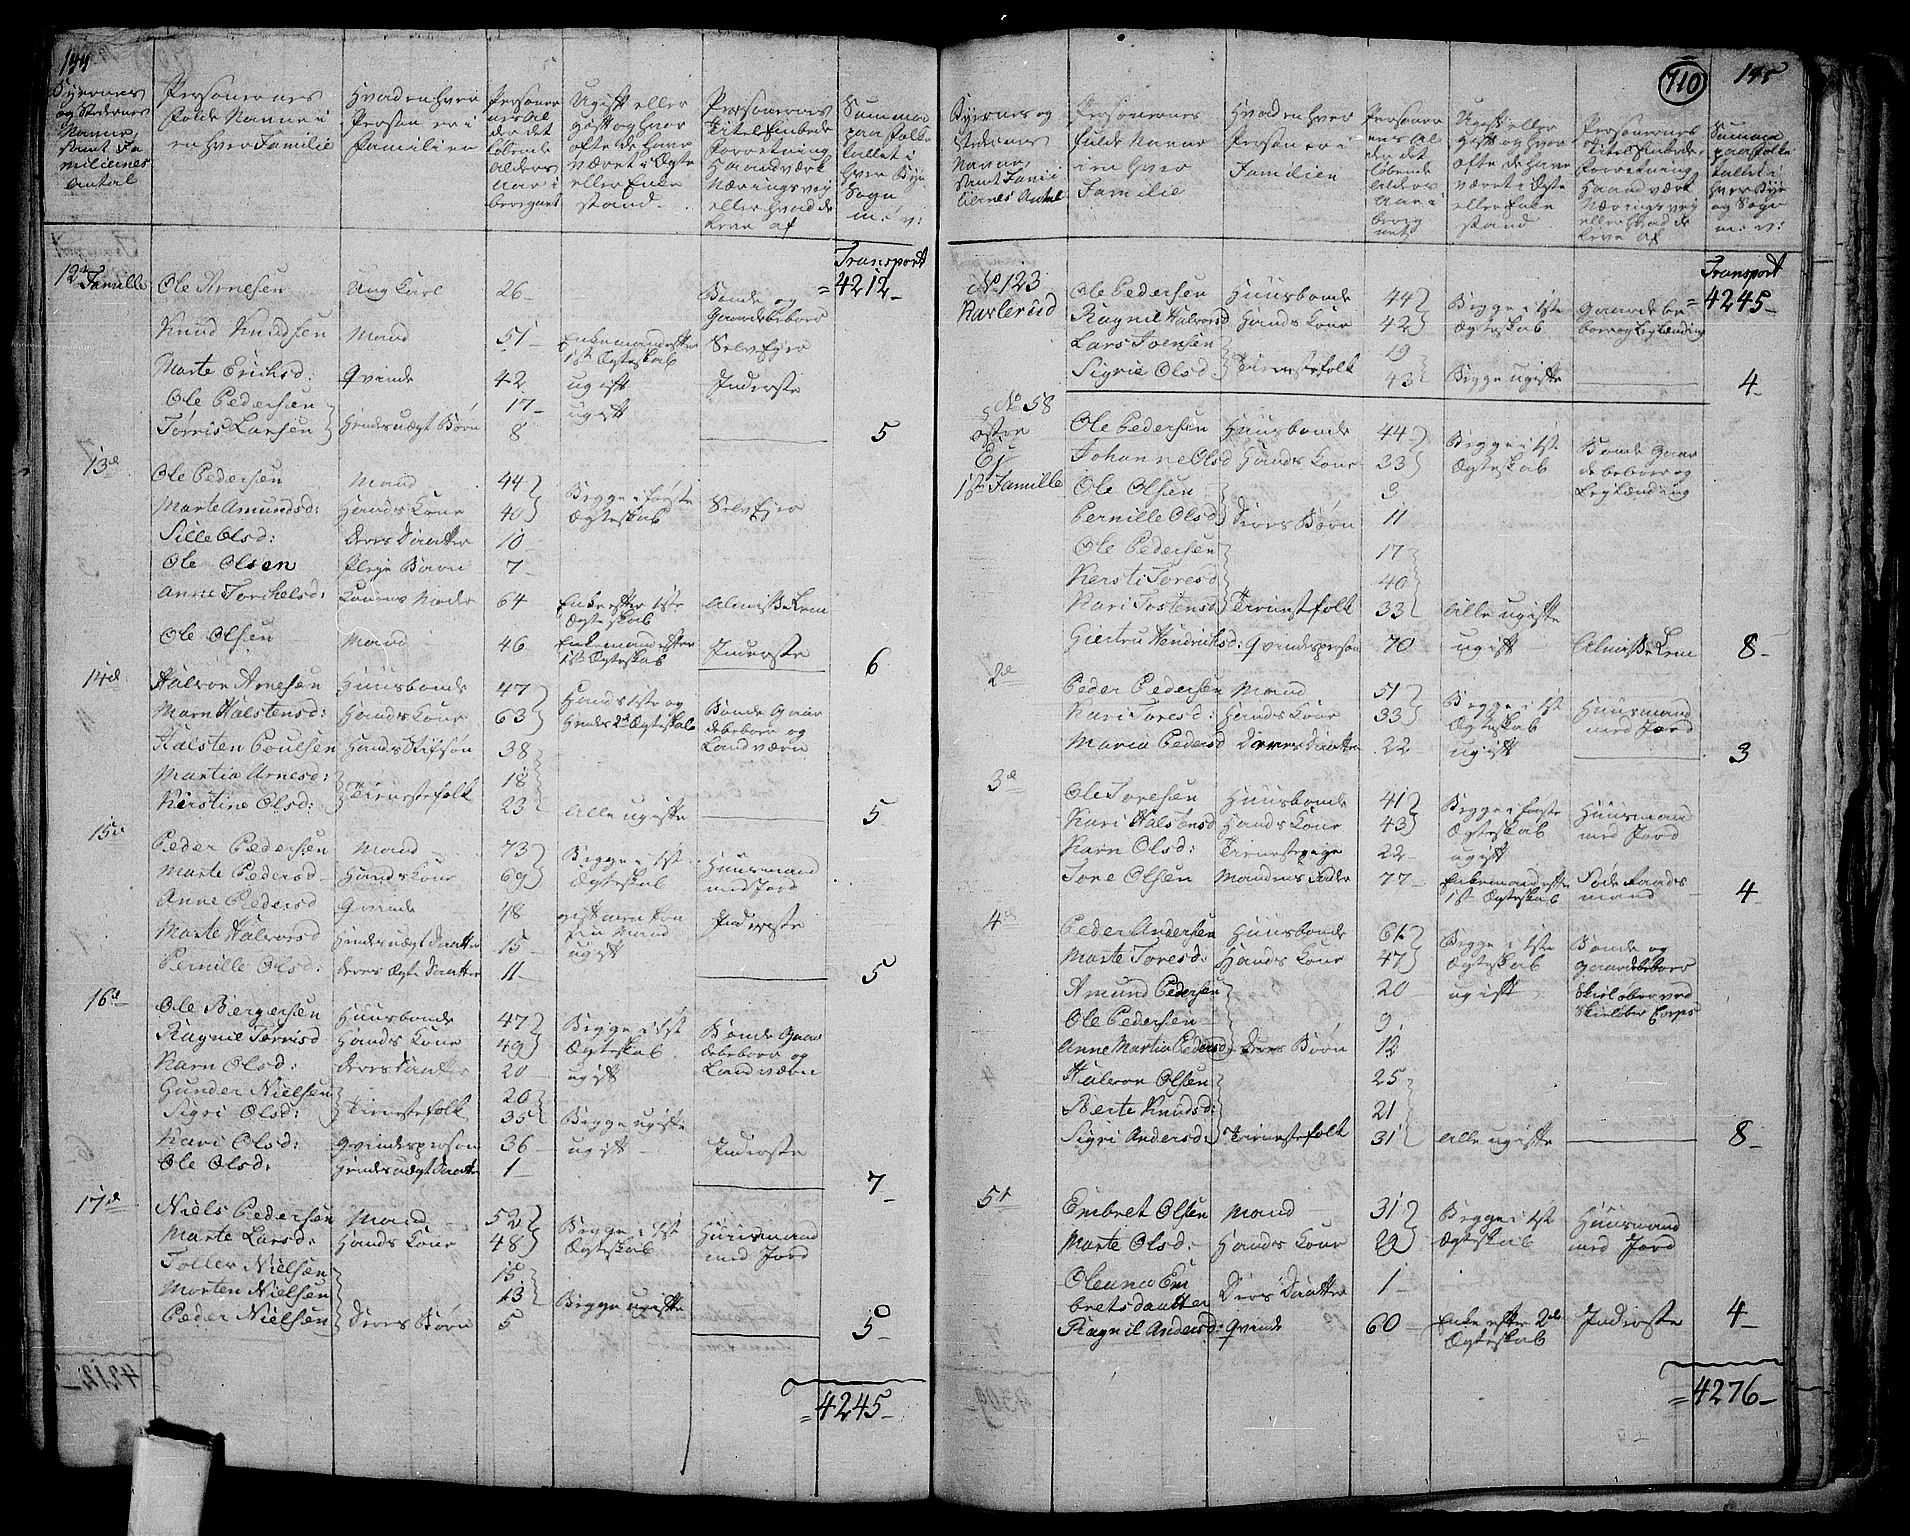 144
Byernes og Stedernes Navne, samt Familiernes Antal
Personernes fulde Navne i enhver Familie
Hvad enhver Person er i Familien
Personernes Alder det løbende Alders aar i beregnet
Ugift eller gift og hvor ofte de have været i Ægte eller Enke stand.
Personernes Titel Embede Forretning Haandværk Næringsvej eller hvad de Leve af
Summa paa folketallet i hver Bye Sogn m: v:
Transport
=4212-
12te Familie Ole Arnesen Ung Karl 26 Bonde og Gaardebeboer
Knud Knudsen Mand 51 Enkemand efter 1st Ægteskab Selv Ejer
Marte Erichsd: Qvinde 42 ugift Inderste
Ole Pedersen 17 ugift
Torris Larsen Hendes uægt Børn 8
5
13de
Ole Pedersen Mand 44 Begge i første Ægteskab Selv Ejer
Marte Amundsd: Hands Kone 40
Sille Olsd: Deres Daatter 10
Ole Olsen Pleye Barn 7
Anne Torchelsd: Konens Moder 64 Enke efter 1ste Ægteskab Almisse Lem
Ole Olsen Mand 46 Enkemand efter 1st Ægteskab Inderste
6
14de
Halvor Arnesen Huusbonde 47 Hands 1ste og Hendes 2det Ægteskab Bonde Gaardebeboer og Landværn
Marn Halstensd: Hands Kone 63
Halsten Poulsen Hands Stifsøn 38
Martia Arnesd: 18
Kirstine Olsd: Tienestefolk 23 Alle ugifte
5
15de
Peder Pedersen Mand 73 Begge i 1st Ægteskab Huusmand med Jord
Marte Pedersd Hands Kone 69
Anne Pedersd Qvinde 48 gift men fra sin Mand Inderste
Marte Halvorsd Hendes uægt Daatter 15 ugift
Pernille Olsd: Deres Ægte Daatter 11
5
16de
Ole Bergersen Huusbonde 47 Begge i 1st Ægteskab Bonde Gaardebeboer og Landværn
Ragnil Torrisd Hands Kone 49
Karn Olsd: Deres Daatter 20 ugift
Gunder Nielsen 20
Sigri Olsd: Tienestefolk 35 Begge ugifte
Kari Olsd: Qvindesperson 36 ugift Inderste
Ole Olsd: Hendes uægt Daatter 1
7
17de
Niels Pedersen Mand 52 Begge i 1st Ægteskab Huusmand med Jord
Marte Larsd: Hands Kone 48
Toller Nielsen 15
Morten Nielsen 13 Begge ugifte
Peder Nielsen Deres Børn 5
5
=4245-
710
145
Byernes og Stedernes Navne, samt Familiernes Antal
Personernes fulde Navne i en hver Familie
Hvad enhver Person er i Familien
Personernes Alder det løbende Alders Aar i beregnet
Ugift eller Gift og hvor ofte de have været i Ægte eller Enke stand
Personernes Titel Embede, Forretning Haandværk Næringsvej eller hvad de Leve af
Summa paa folketallet i hver Bye og Sogn m: v:
Transport
=4245-
No 123
Karlerud
Ole Pedersen Huusbonde 44 Begge i 1ste Ægteskab Gaardebeboer og Leylænding
Ragnil Halvorsd Hands Kone 42
Lars Joensen 19
Sigrie Olsd Tienestefolk 43 Begge ugifte
4
No 58
østre
Ej
1ste Familie
Ole Pedersen Huusbonde 44 Begge i 1ste Ægteskab Bonde Gaardebeboer og Leylænding
Johanne Olsd Hands Kone 33
Ole Olsen 3
Pernille Olsd Deres Børn 11
Ole Pedersen 17
Kersti Toresd 40
Kari Tostensd Tienestfolk 33 Alle ugifte
Giertru Hendrichsd: Qvindesperson 70 ugift Almisse Lem
8-
2de
Peder Pedersen Mand 51 Begge i 1st Ægteskab Huusmand med Jord
Kari Toresd: Hands Kone 33
Maria Pedersd Deres Daatter 22 ugift
3
3de
Ole Toresen Huusbonde 41 Begge i første Ægteskab Huusmand med Jord
Kari Halstensd Hands Kone 43
Karn Olsd: Tienestepige 22 ugift
Tore Olsen Mandens Fader 77 Enkemand efter 1st Ægteskab Føderaads mand
4
4de
Peder Andersen Huusbonde 61 Begge i 1ste Ægteskab Bonde og Gaardebeboer
Marte Toresd: Hands Kone 47
Amund Pedersen 20 ugift Skieløber ved Skieløber Corps
Ole Pedersen 9
Anne Martia Pedersd Deres Børn 12
Halvor Olsen 25
Berte Knudsd: 21
Sigri Andersd: Tienestefolk 31 Alle ugifte
8-
5te
Embret Olsen Mand 31 Begge i 1st Ægteskab Huusmand med Jord
Marte Olsd: Hands Kone 29
Oleana Embretsdaatter Deres Daatter 1
Ragnil Andersd: Qvinde 60 Enke efter 2det Ægteskab Inderste
4
=4276-